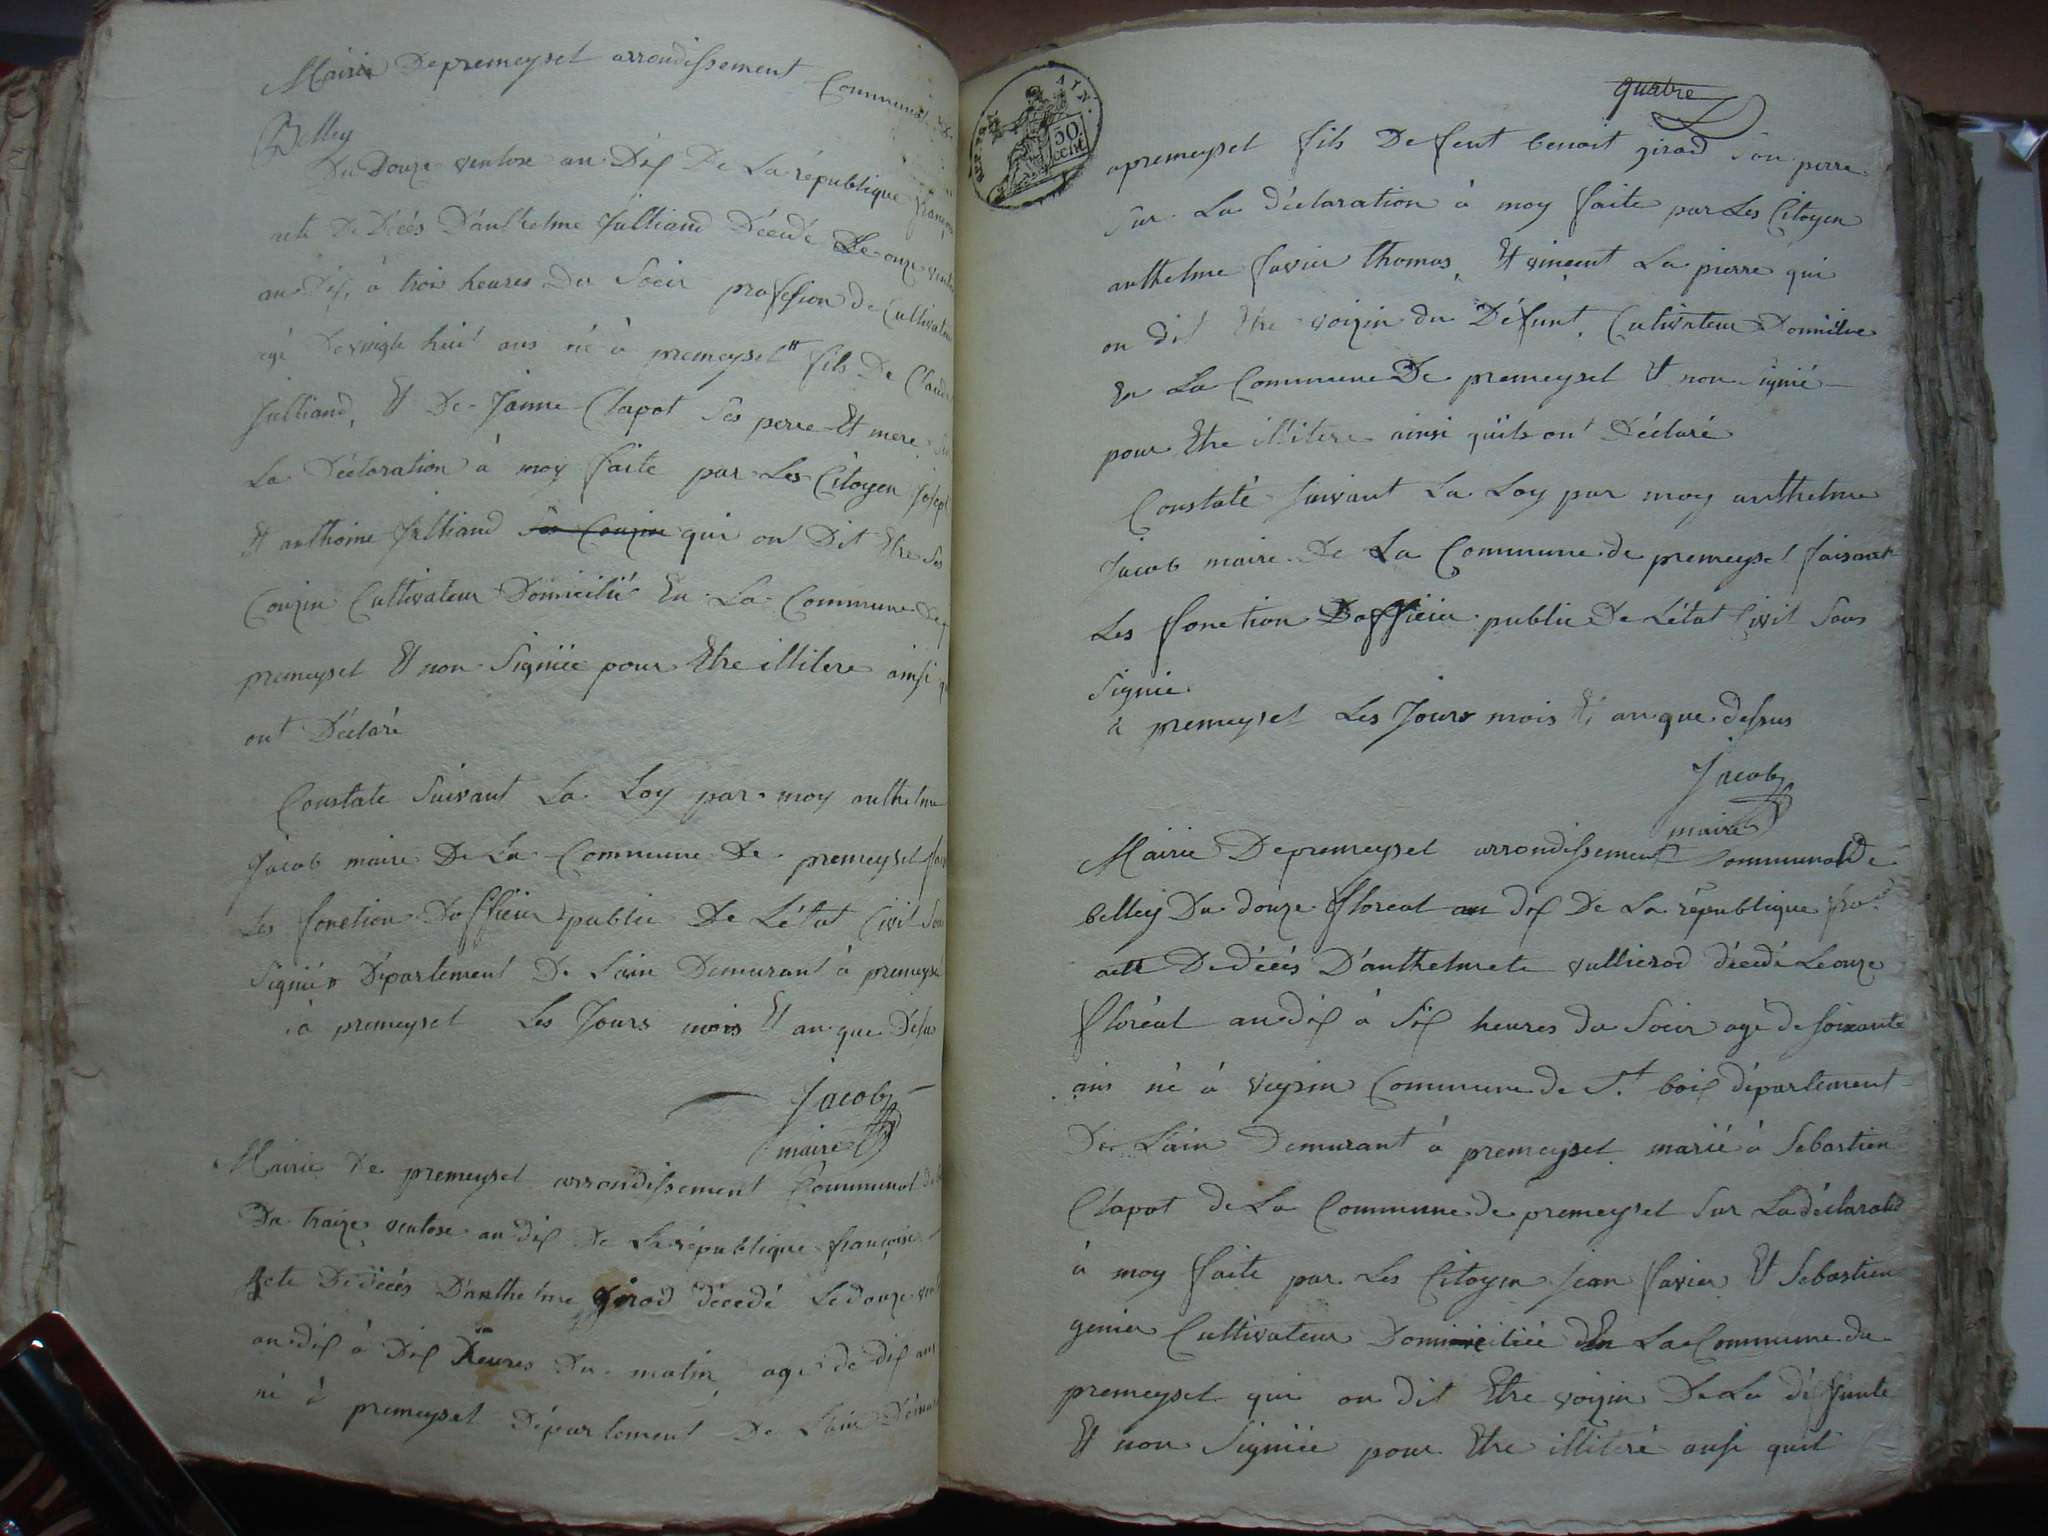 Mairie Depremeyset arrondissement Communal de
Belley
Du Douze ventose an Dix De La république françois
acte De Décés D'anthelme Julliand Décédé Le onze ventos
an Dix, à trois heures Du Soeir profession de Cultivateur
agé De vingts huit ans né à premeyset" fils De Claude
Julliand, Et De Janne Clapot Ses perre Et mere
La Déclaration à moy faite par Les Citoyen Joseph
Et anthoine Julliand Ses Couzin qui on Dit Etre Ses
Couzin Cultivateur Domicilié En La Commune De
premeyset Et non Signiée pour Etre illitere ainsi
ont Déclaré
Constate Suivant La Loy par moy anthelme
Jacob maire De La Commune De premeyset
Les fonction Dofficier public De L'état Civil Sou
Signié " Département De Lain Demurant à premeyse
à premeyset Les Jours mois Et an que Desus
Jacob
maire
Mairie De premeyset arrondissement Communal
Du traize ventose an dix De La république françoise
Acte De décés D'anthelme girod décedé Le douze
an dix à Dix heures Du matin agé de dix ans
né à premeyset Département De Lain Demur
AIN.
50
CENT.
quatre
apremeyset fils De feut benoit girod Son perre
Sur La déclaration à moy faite par Les Citoyen
anthelme favier thomas, Et vincent La pierre qui
on dit Etre voizin du Défunt, Cultivateur Domicilie
En La Commune De premeyset Et non Signié
pour Etre illitere ainsi qu'ils on' Déclaré
Constaté Suivant La Loy par moy anthelme
Jacob maire De La Commune de premeyset faisant
Les fonction Dofficier public De L'état Civil Sous
Signié
à premeyset Les Jours mois Et an que dessus
Jacob
maire
Mairie Depremeyset arrondissement Communal De
belley Du douze floreal an dix De La république fra
acte De décés D'anthelmete vullierod décédé Le onze
floréal an dix à Six heures du Soeir agé de Soixante
ans né à veyrin Commune de St. boix département
De Lain Demurant à premeyset marié à Sebastien
Clapot de La Commune de premeyset Sur La déclaratio
à moy faite par Les Citoyen jean favier Et Sebastien
genier Cultivateur Domiciliée En La Commune du
premeyset qui on dit Etre voizin De La deffunte
Et non Signiée pour Etre illiteré ausi quil